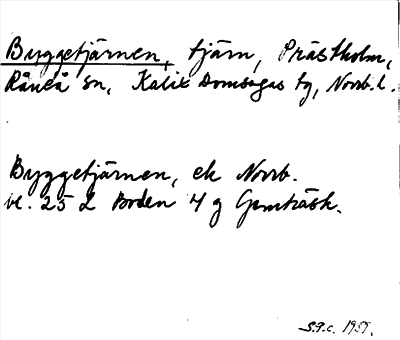 Byggetjärnen, tjärn, Prästholm,
Råneå sn, Kalix Domsagas tg, Norrb. l.
Byggetjärnen, ek Norrb.
bl. 25 L Boden 4 g Gunnträsk.
S.P.c. 1959.